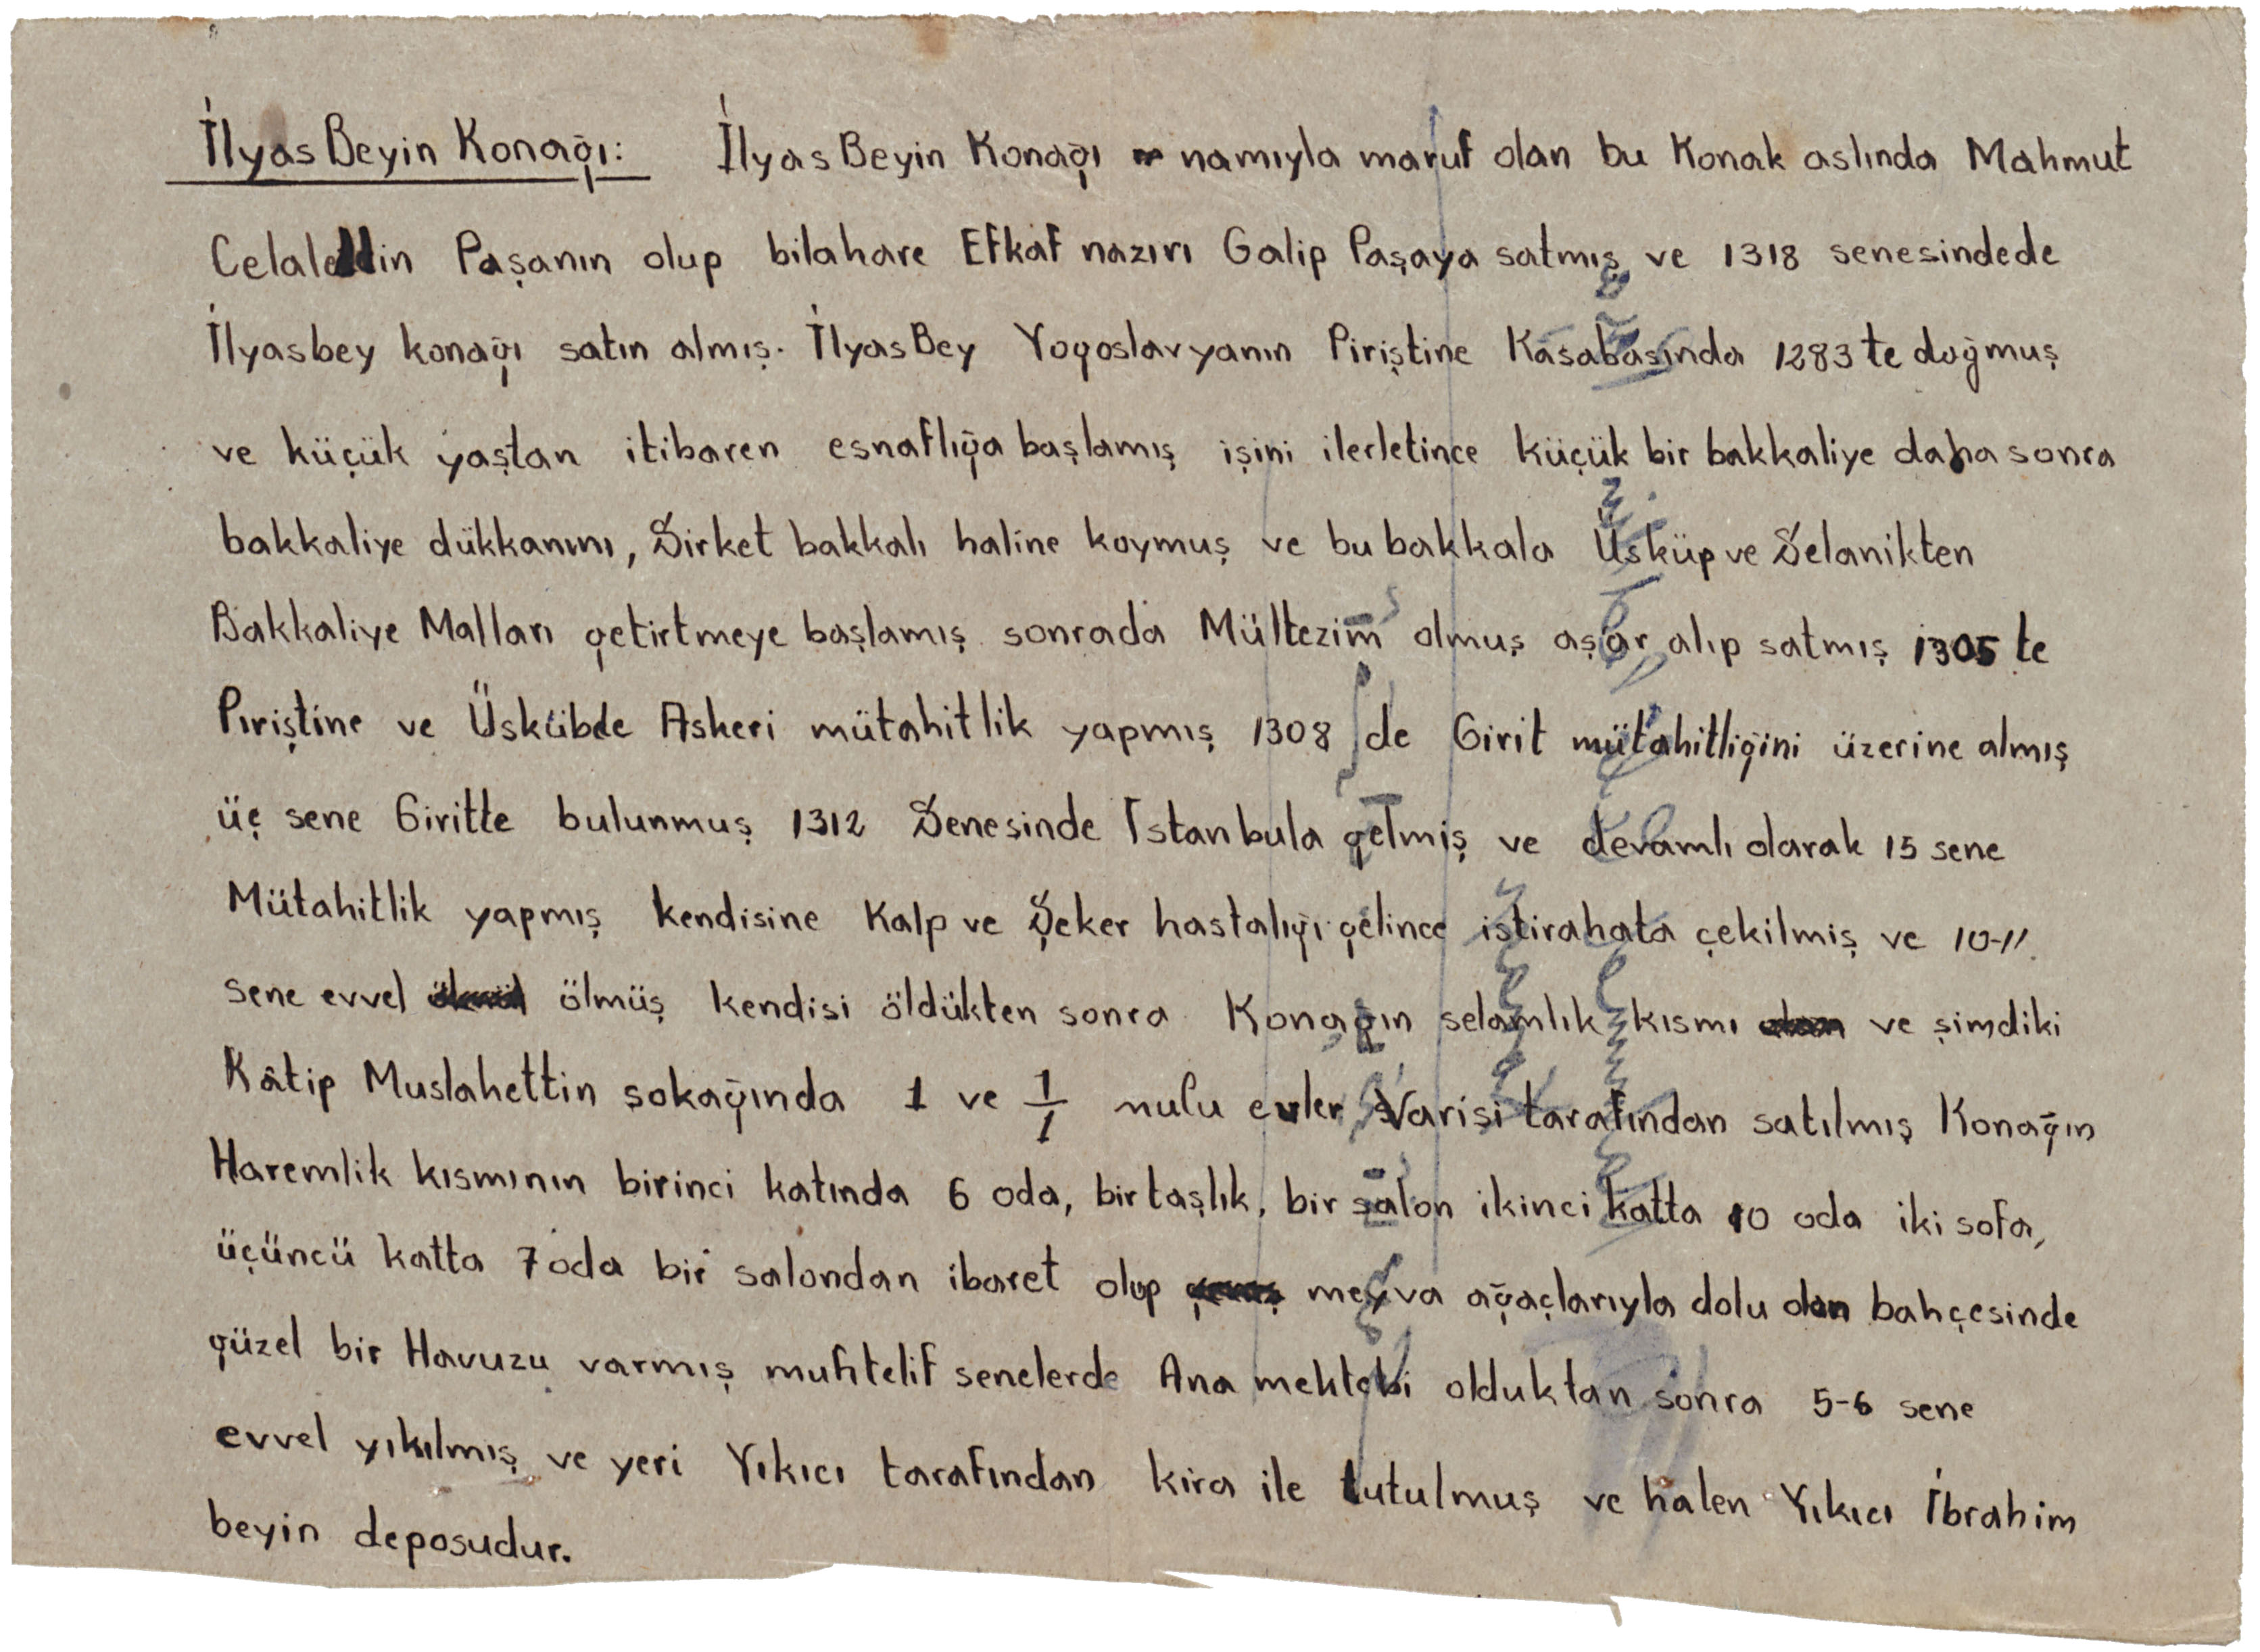 İlyas Beyin Konağı: İlyas Beyin Konağı namıyla maruf olan bu Konak aslında Mahmut
Celaleddin Paşanın olup bilahare Efkaf nazırı Galip Paşaya satmış ve 1318 senesindede
İlyasbey konağı satın almış. İlyas Bey Yogoslavyanın Piriştine Kasabasında 1283 te doğmuş
ve küçük yaştan itibaren esnaflığa başlamış işini ilerletince küçük bir bakkaliye daha sonra
bakkaliye dükkanını, Şirket bakkalı haline koymuş ve bu bakkala Üsküp ve Selanikten
Bakkaliye Malları getirtmeye başlamış sonrada Mültezim olmuş aşar alıp satmış 1305 te
Piriştine ve Üskübde Askeri mütahitlik yapmış 1308 de Girit mütahitliğini üzerine almış
üç sene Giritte bulunmuş 1312 Senesinde İstanbula gelmiş ve devamlı olarak 15 sene
Mütahitlik yapmış kendisine Kalp ve Şeker hastalığı gelince istirahata çekilmiş ve 10-11
sene evvel ölmüş kendisi öldükten sonra Konağın selamlık kısmı ve şimdiki
Kâtip Muslahettin sokağında 1 ve 1/1 nulu evler Varisi tarafından satılmış Konağın
Haremlik kısmının birinci katında 6 oda, bir taşlık, bir salon ikinci katta 10 oda iki sofa,
üçüncü katta 7 oda bir salondan ibaret olup meyva ağaçlarıyla dolu olan bahçesinde
güzel bir Havuzu varmış muhtelif senelerde Ana mektebi olduktan sonra 5-6 sene
evvel yıkılmış ve yeri Yıkıcı tarafından kira ile tutulmuş ve halen Yıkıcı İbrahim
beyin deposudur.